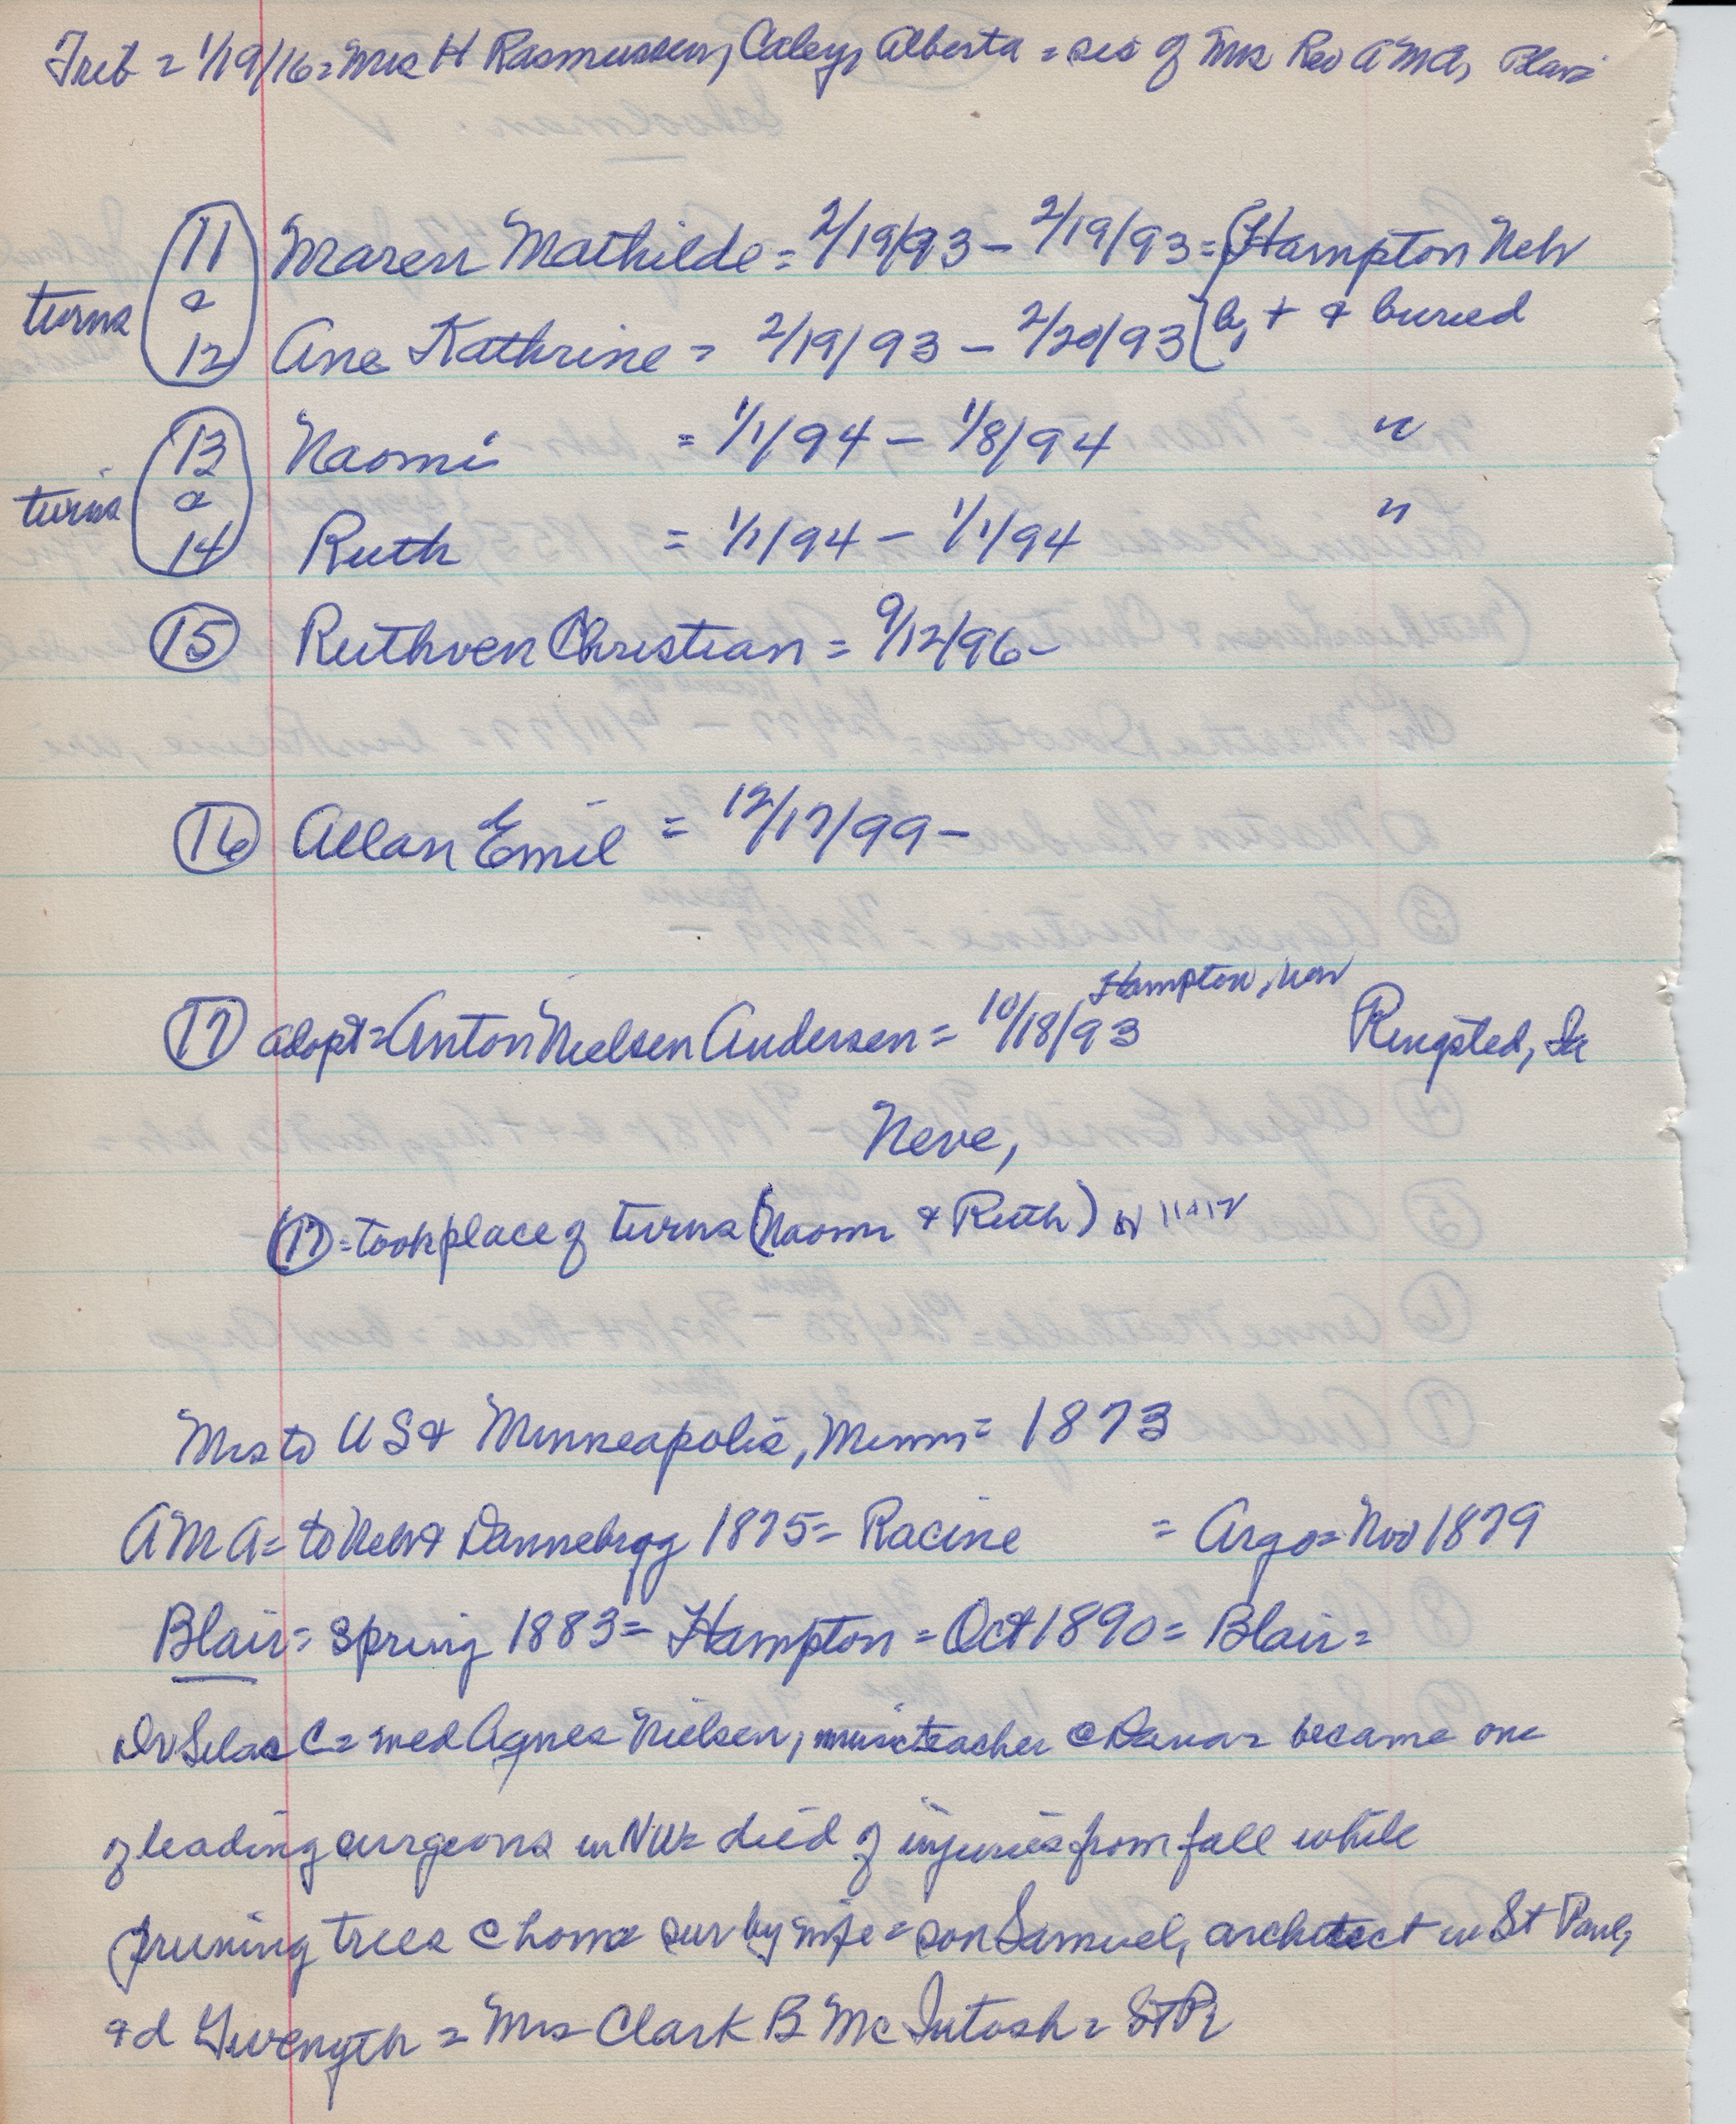 Trib = 1/19/16 = Mrs H Rasmussen, Caley, Alberta = sis of Mrs Rev A M A, Blair
twins 11 & 12
Maren Mathilde = 2/19/93 – 2/19/93 = Hampton Nebr
Ane Kathrine = 2/19/93 – 2/20/93 b, + & buried
twins 13 & 14
Naomi = 1/1/94 – 1/8/94 "
Ruth = 1/1/94 – 1/1/94 "
15 Ruthven Christian = 9/12/96 –
16 Allan Emil = 12/17/99 –
Hampton, Nebr
17 adopt = Anton Nielsen Andersen = 10/18/93 Ringsted, Ia
Neve,
17 = took place of twins (Naomi & Ruth)
Mrs to US & Minneapolis, Minn = 1873
A M A = to Nebr & Dannebrog 1875 = Racine = Argo = Nov 1879
Blair = Spring 1883 = Hampton = Oct 1890 = Blair =
Dr Silas C = med Agnes Nielsen, music teacher @ Dana = became one
of leading surgeons in NW = died of injuries from fall while
pruning trees @ home sur by wife = son Samuel, architect in St Paul,
& d Gwenyth = Mrs Clark B McIntosh = St P